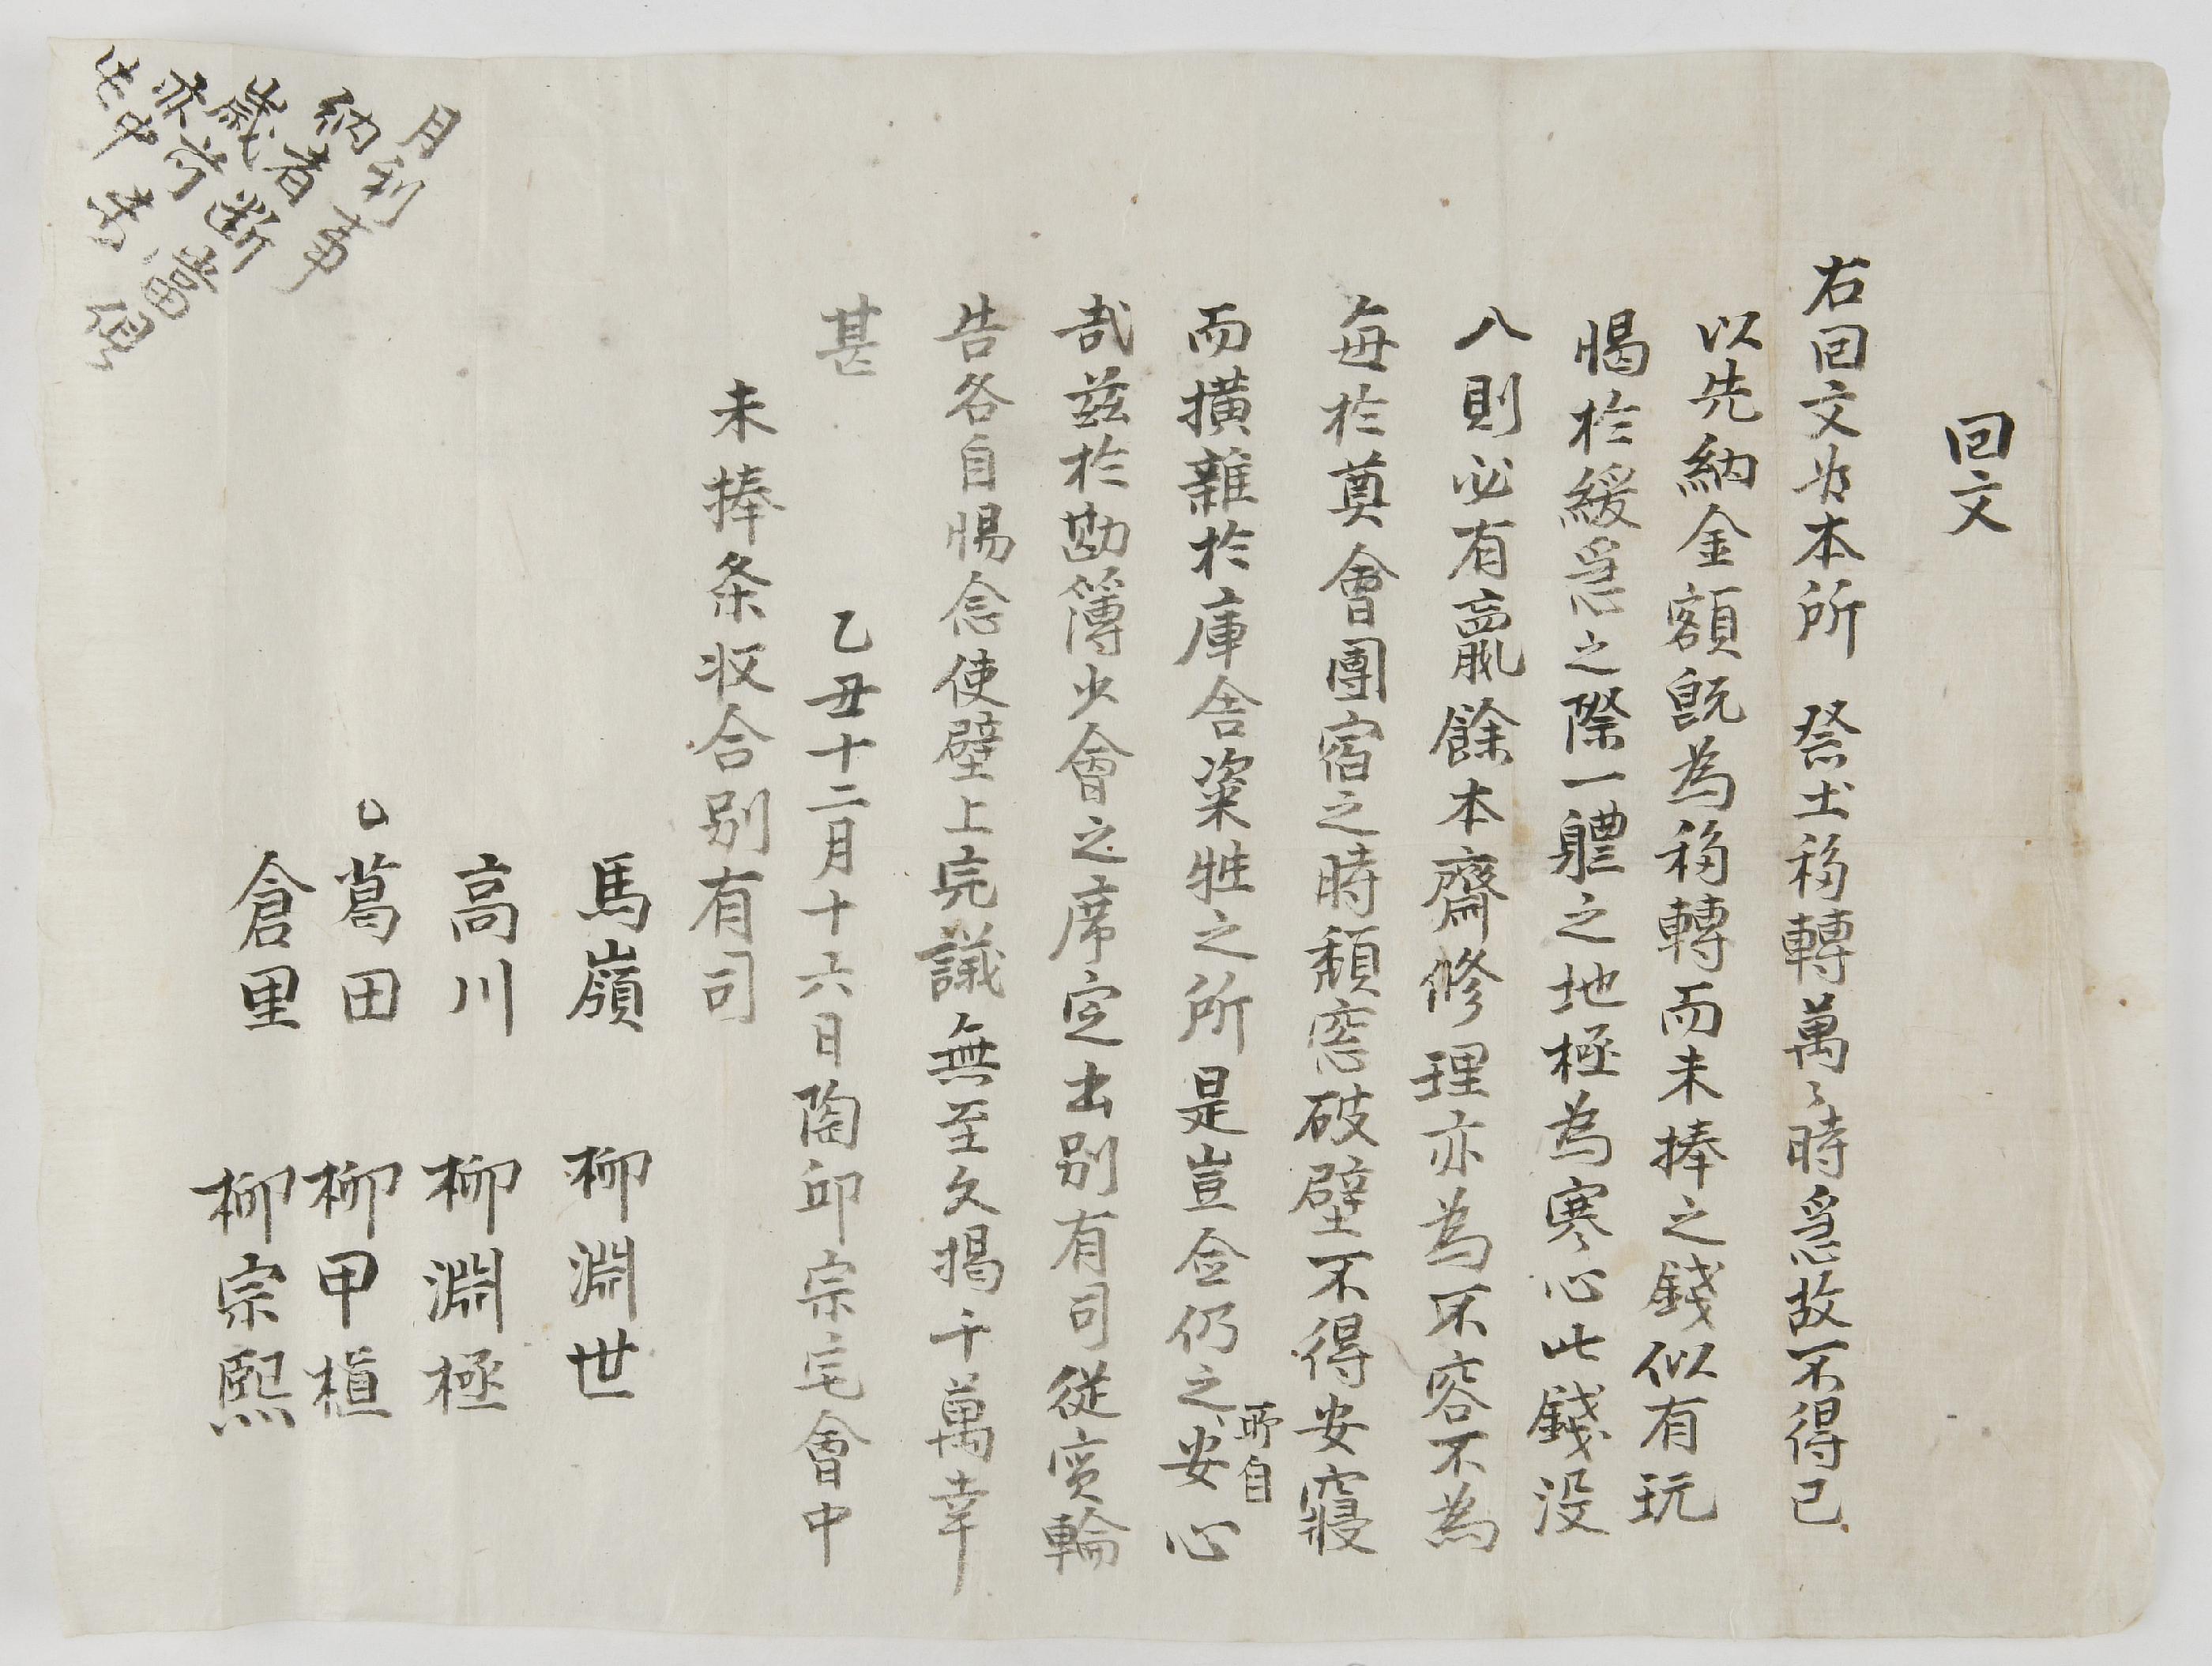 回文
右回文爲本所 祭土移轉萬〻時急故不得已
以先納金額旣為移轉而未捧之錢似有玩
愒於緩急之際一軆之地極為寒心此錢沒
八則必有贏餘本齋修理亦為不容不為
每於奠會團宿之時頹窓破壁不得安寢
而擴雜於庫舍粢牲之所是豈僉仍之所自安心
哉玆於勘簿少會之席定出別有司從實輪
告各自惕念使壁上完議無至文揭千萬幸
甚
乙丑十二月十六日陶邱宗宅會中
未捧条收合別有司
馬嶺 柳淵世
高川 柳淵極
葛田 柳甲植
倉里 柳宗熙
月利事
納者斷當
歲前
亦
此中